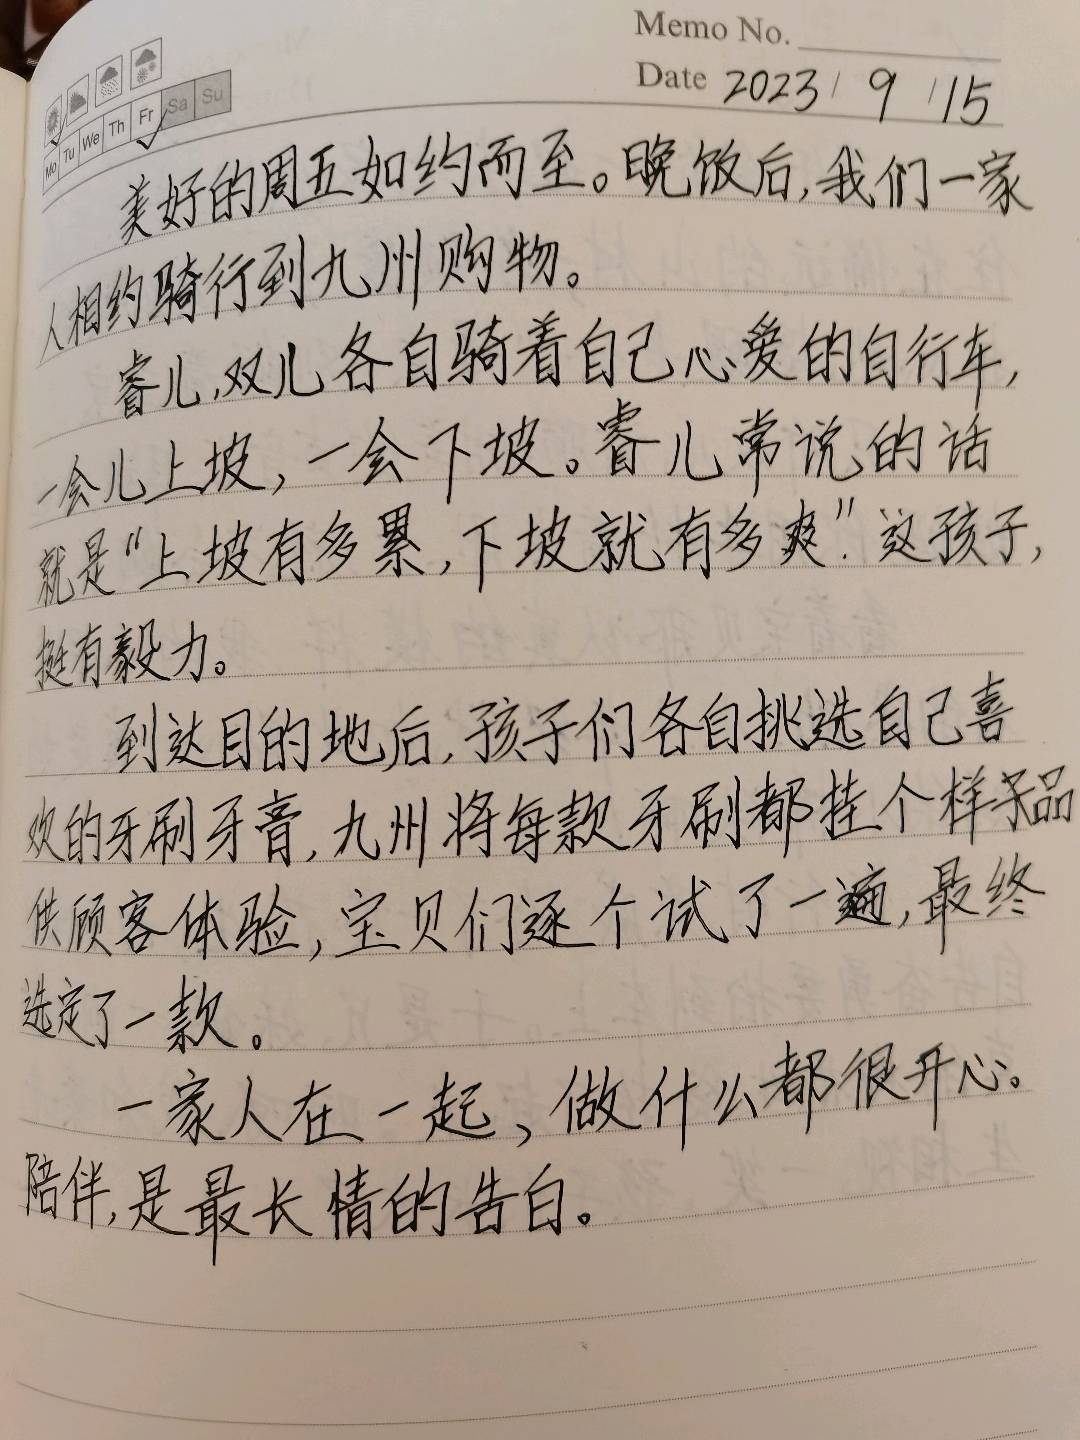 Memo No.
Date 2023 / 9 / 15
Mo Tu We Th Fr Sa Su
美好的周五如约而至。晚饭后,我们一家
人相约骑行到九州购物。
睿儿,双儿各自骑着自己心爱的自行车,
一会儿上坡,一会下坡。睿儿常说的话
就是“上坡有多累,下坡就有多爽”.这孩子,
挺有毅力。
到达目的地后,孩子们各自挑选自己喜
欢的牙刷牙膏,九州将每款牙刷都挂个样品
供顾客体验,宝贝们逐个试了一遍,最终
选定了一款。
一家人在一起,做什么都很开心。
陪伴,是最长情的告白。